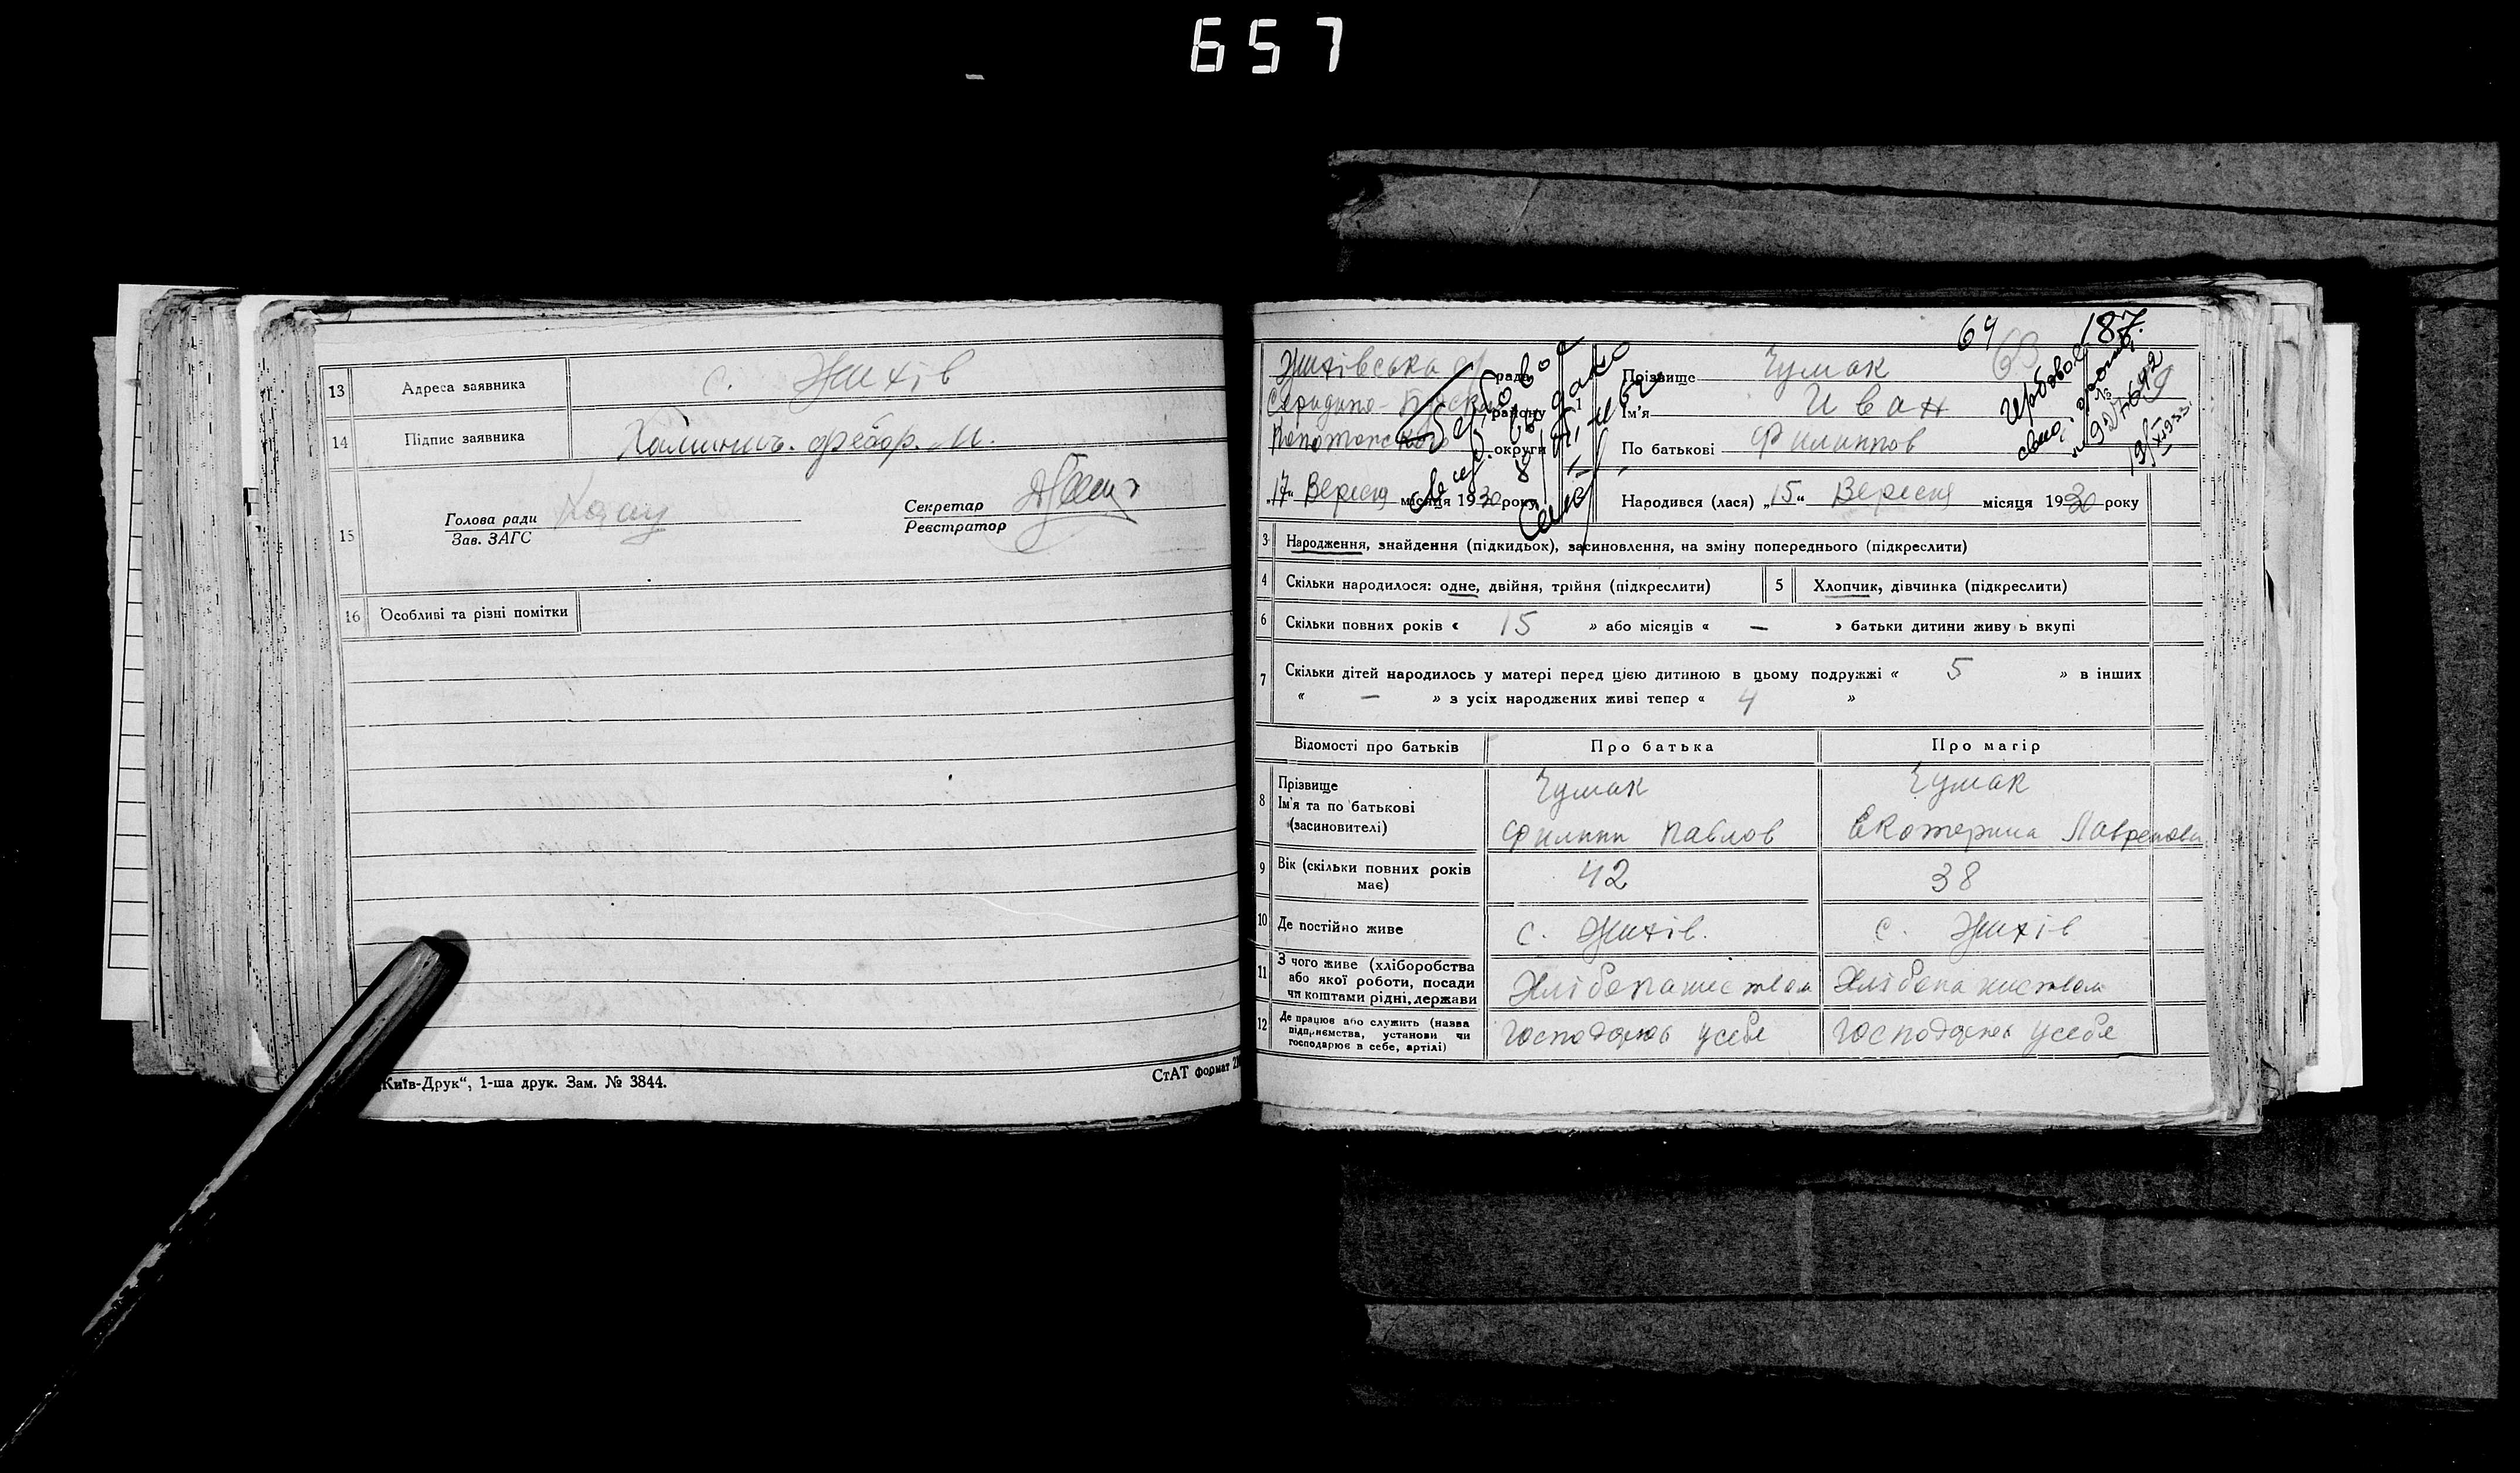 657
13 Адреса заявника с. Жихів
14 Підпис заявника
15
Голова ради
Зав. ЗАГС
Секретар
Реєстратор
16 Особливі та різні помітки
Київ-Друк“, 1-ша друк. Зам. № 3844.
СтАТ формат
64 63 187.
Жихівська с/ рада
Середино-Будськ району
Конотопської округи
„17“ Вересня місяця 1930 року
Гербовое
Прізвище Чумак
Ім'я Иван
По батькові Филиппов
Народився (лася) „15“ Вересня місяця 1930 року
3 Народження, знайдення (підкидьок), засиновлення, на зміну попереднього (підкреслити)
4 Скільки народилося: одне, двійня, трійня (підкреслити) 5 Хлопчик, дівчинка (підкреслити)
6 Скільки повних років « 15 » або місяців « — » батьки дитини живу ь вкупі
7 Скільки дітей народилось у матері перед цією дитиною в цьому подружжі « 5 » в інших
« — » з усіх народжених живі тепер « 4 »
Відомості про батьків Про батька Про матір
8 Прізвище Чумак Чумак
Ім'я та по батькові
(засновителі) Филипп Павлов Екатерина
9 Вік (скільки повних років має) 42 38
10 Де постійно живе с. Жихів. с. Жихів
11 З чого живе (хліборобства
або якої роботи, посади
чи коштами рідні, держави Хлібопашеством Хлібопашеством
12 Де працює або служить (назва
підприємства, установи чи
господарює в себе, артілі) господарює у себе господарює у себе